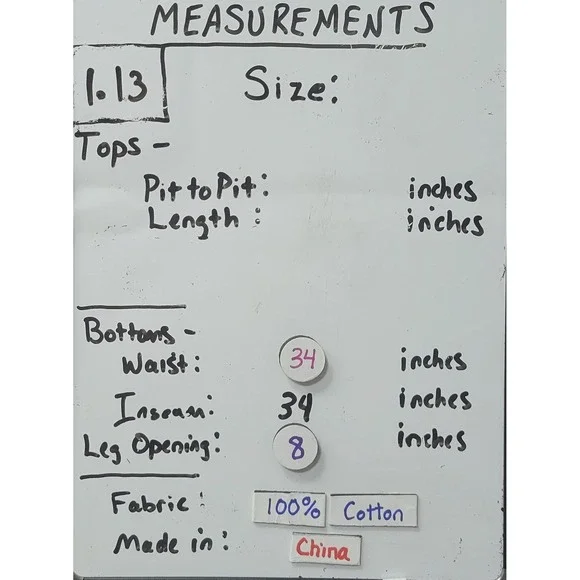 MEASUREMENTS
1.13 Size:
Tops -
Pit to Pit: inches
Length: inches
Bottoms -
Waist: 34 inches
Inseam: 34 inches
Leg Opening: 8 inches
Fabric: 100% Cotton
Made in: China